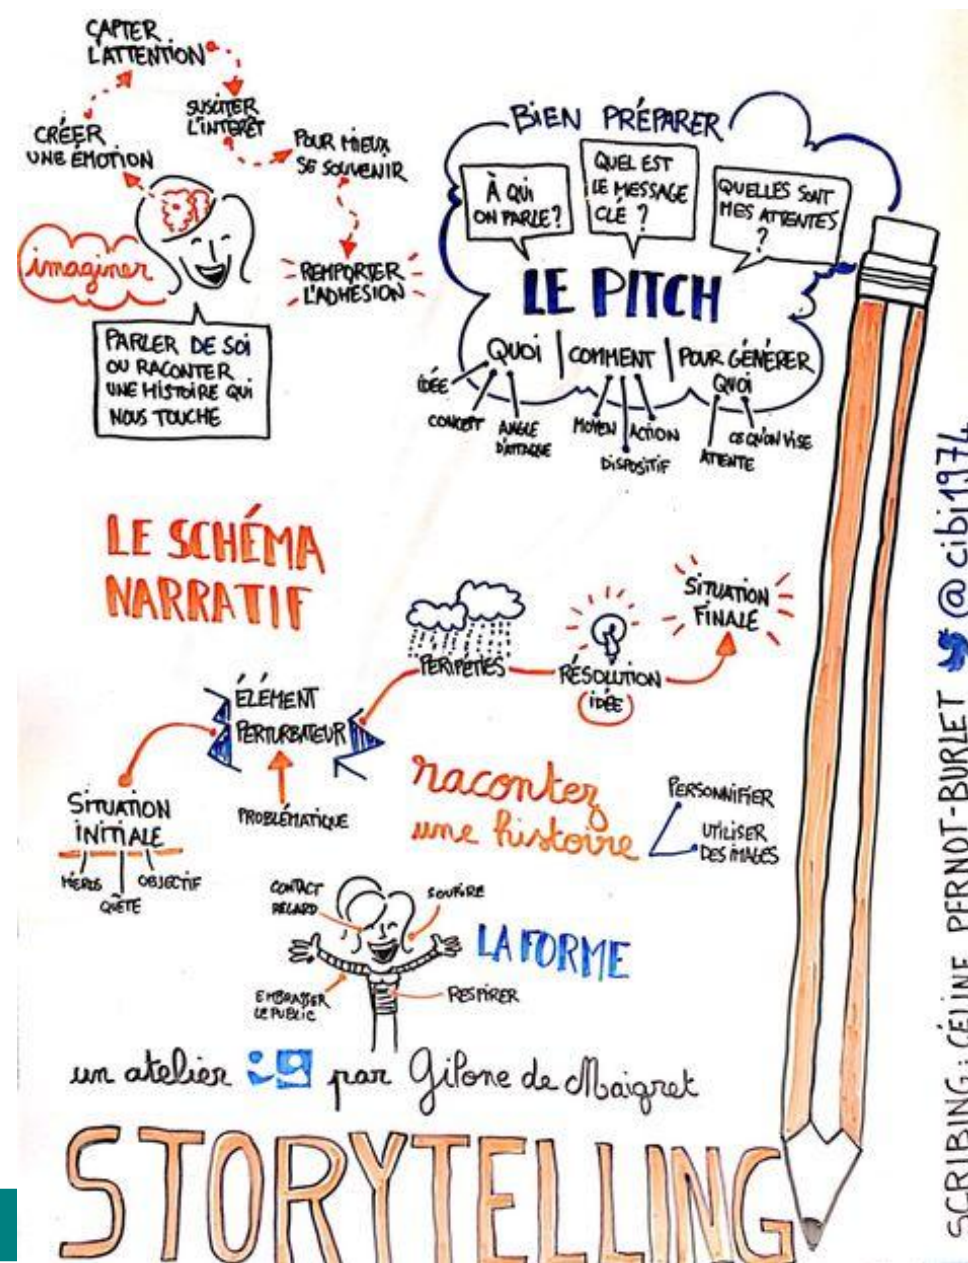 CAPTER
L'ATTENTION
SUSCITER
L'INTERÊT
CRÉER
UNE ÉMOTION
POUR MIEUX
SE SOUVENIR
imaginer
REMPORTER
L'ADHÉSION
PARLER DE SOI
OU RACONTER
UNE HISTOIRE QUI
NOUS TOUCHE
BIEN PRÉPARER
À QUI
ON PARLE?
QUEL EST
LE MESSAGE
CLÉ ?
QUELLES SONT
MES ATTENTES
?
LE PITCH
QUOI | COMMENT | POUR GÉNÉRER
QUOI
IDÉE
CONCEPT
ANGLE
D'ATTAQUE
MOYEN
ACTION
DISPOSITIF
CE QU'ON VISE
ATTENTE
LE SCHÉMA
NARRATIF
SITUATION
FINALE
PERIPÉTIES
RÉSOLUTION
IDÉE
ÉLÉMENT
PERTURBATEUR
PROBLÉMATIQUE
SITUATION
INITIALE
HÉROS
QUÊTE
OBJECTIF
racontez
une histoire
PERSONNIFIER
UTILISER
DES IMAGES
CONTACT
REGARD
SOURIRE
LA FORME
EMBRASSER
LE PUBLIC
RESPIRER
un atelier ig par Gilone de Maigret
STORYTELLING
SCRIBING: CÉLINE PERNOT-BURLET @cibi1974